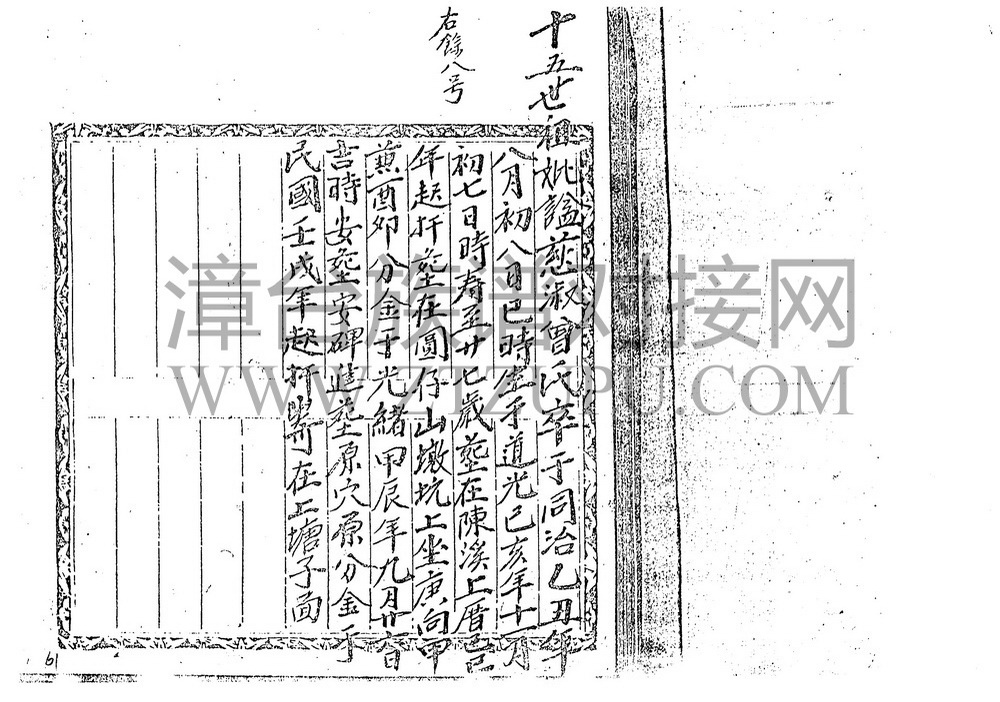 十五世祖妣諡慈淑曾氏卒于同治乙丑年
八月初八日巳時生于道光己亥年十一月
初七日時壽至廿七歲葬在陳溪上厝己
年起扦葬在圓仔山墩坑上坐庚向甲
兼酉卯分金于光緒甲辰年九月廿六日
吉時安葬安碑進葬原穴原分金于
民國壬戌年起扦寄在上塘子面
右餘八号
漳台族谱对接网
WWW.ZTZUPU.COM
61